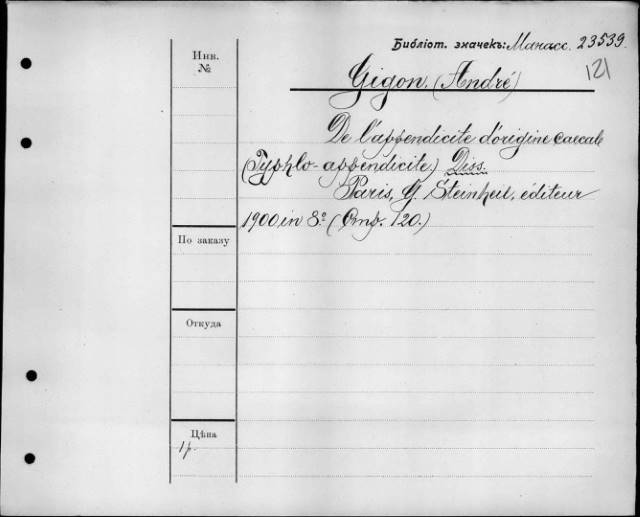 Библіот. значекъ: Манасс. 23539.
121
Инв.
№
Gigon. (André)
De l'appendicite d'origine caecale
(Typhlo-appendicite.) Diss.
Paris, G. Steinheil, éditeur
1900 in 8º (Стр. 120.)
По заказу
Откуда
Цѣна
1 р.